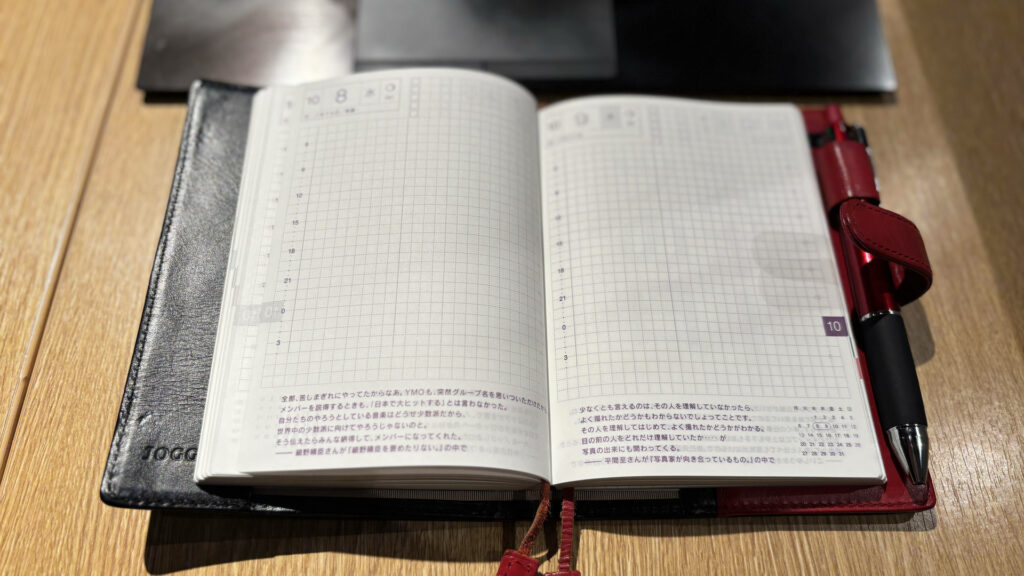 10 8 水
9
12
15
18
21
0
3
全部、苦しまぎれにやってたからなあ。YMOも、突然グループ名を思いついただけだから、
メンバーを説得するときも、「日本で大ヒットする」とは言わなかった。
自分たちのやろうとしている音楽はどうせ少数派だから、
世界中の少数派に向けてやろうじゃないのと。
そう伝えたらみんな納得して、メンバーになってくれた。
——細野晴臣さんが『細野晴臣を褒めたりない。』の中で
JOGG
10 9
12
15
18
21
0
3
10
少なくとも言えるのは、その人を理解していなかったら、
よく撮れたかどうかもわからないでしょってことです。
その人を理解してはじめて、よく撮れたかどうかがわかる。
目の前の人をどれだけ理解していたか……が
写真の出来にも関わってくる。
——平間至さんが『写真家が向き合っているもの。』の中で
月 火 水 木 金 土 日
1 2 3 4 5
6 7 8 9 10 11 12
13 14 15 16 17 18 19
20 21 22 23 24 25 26
27 28 29 30 31